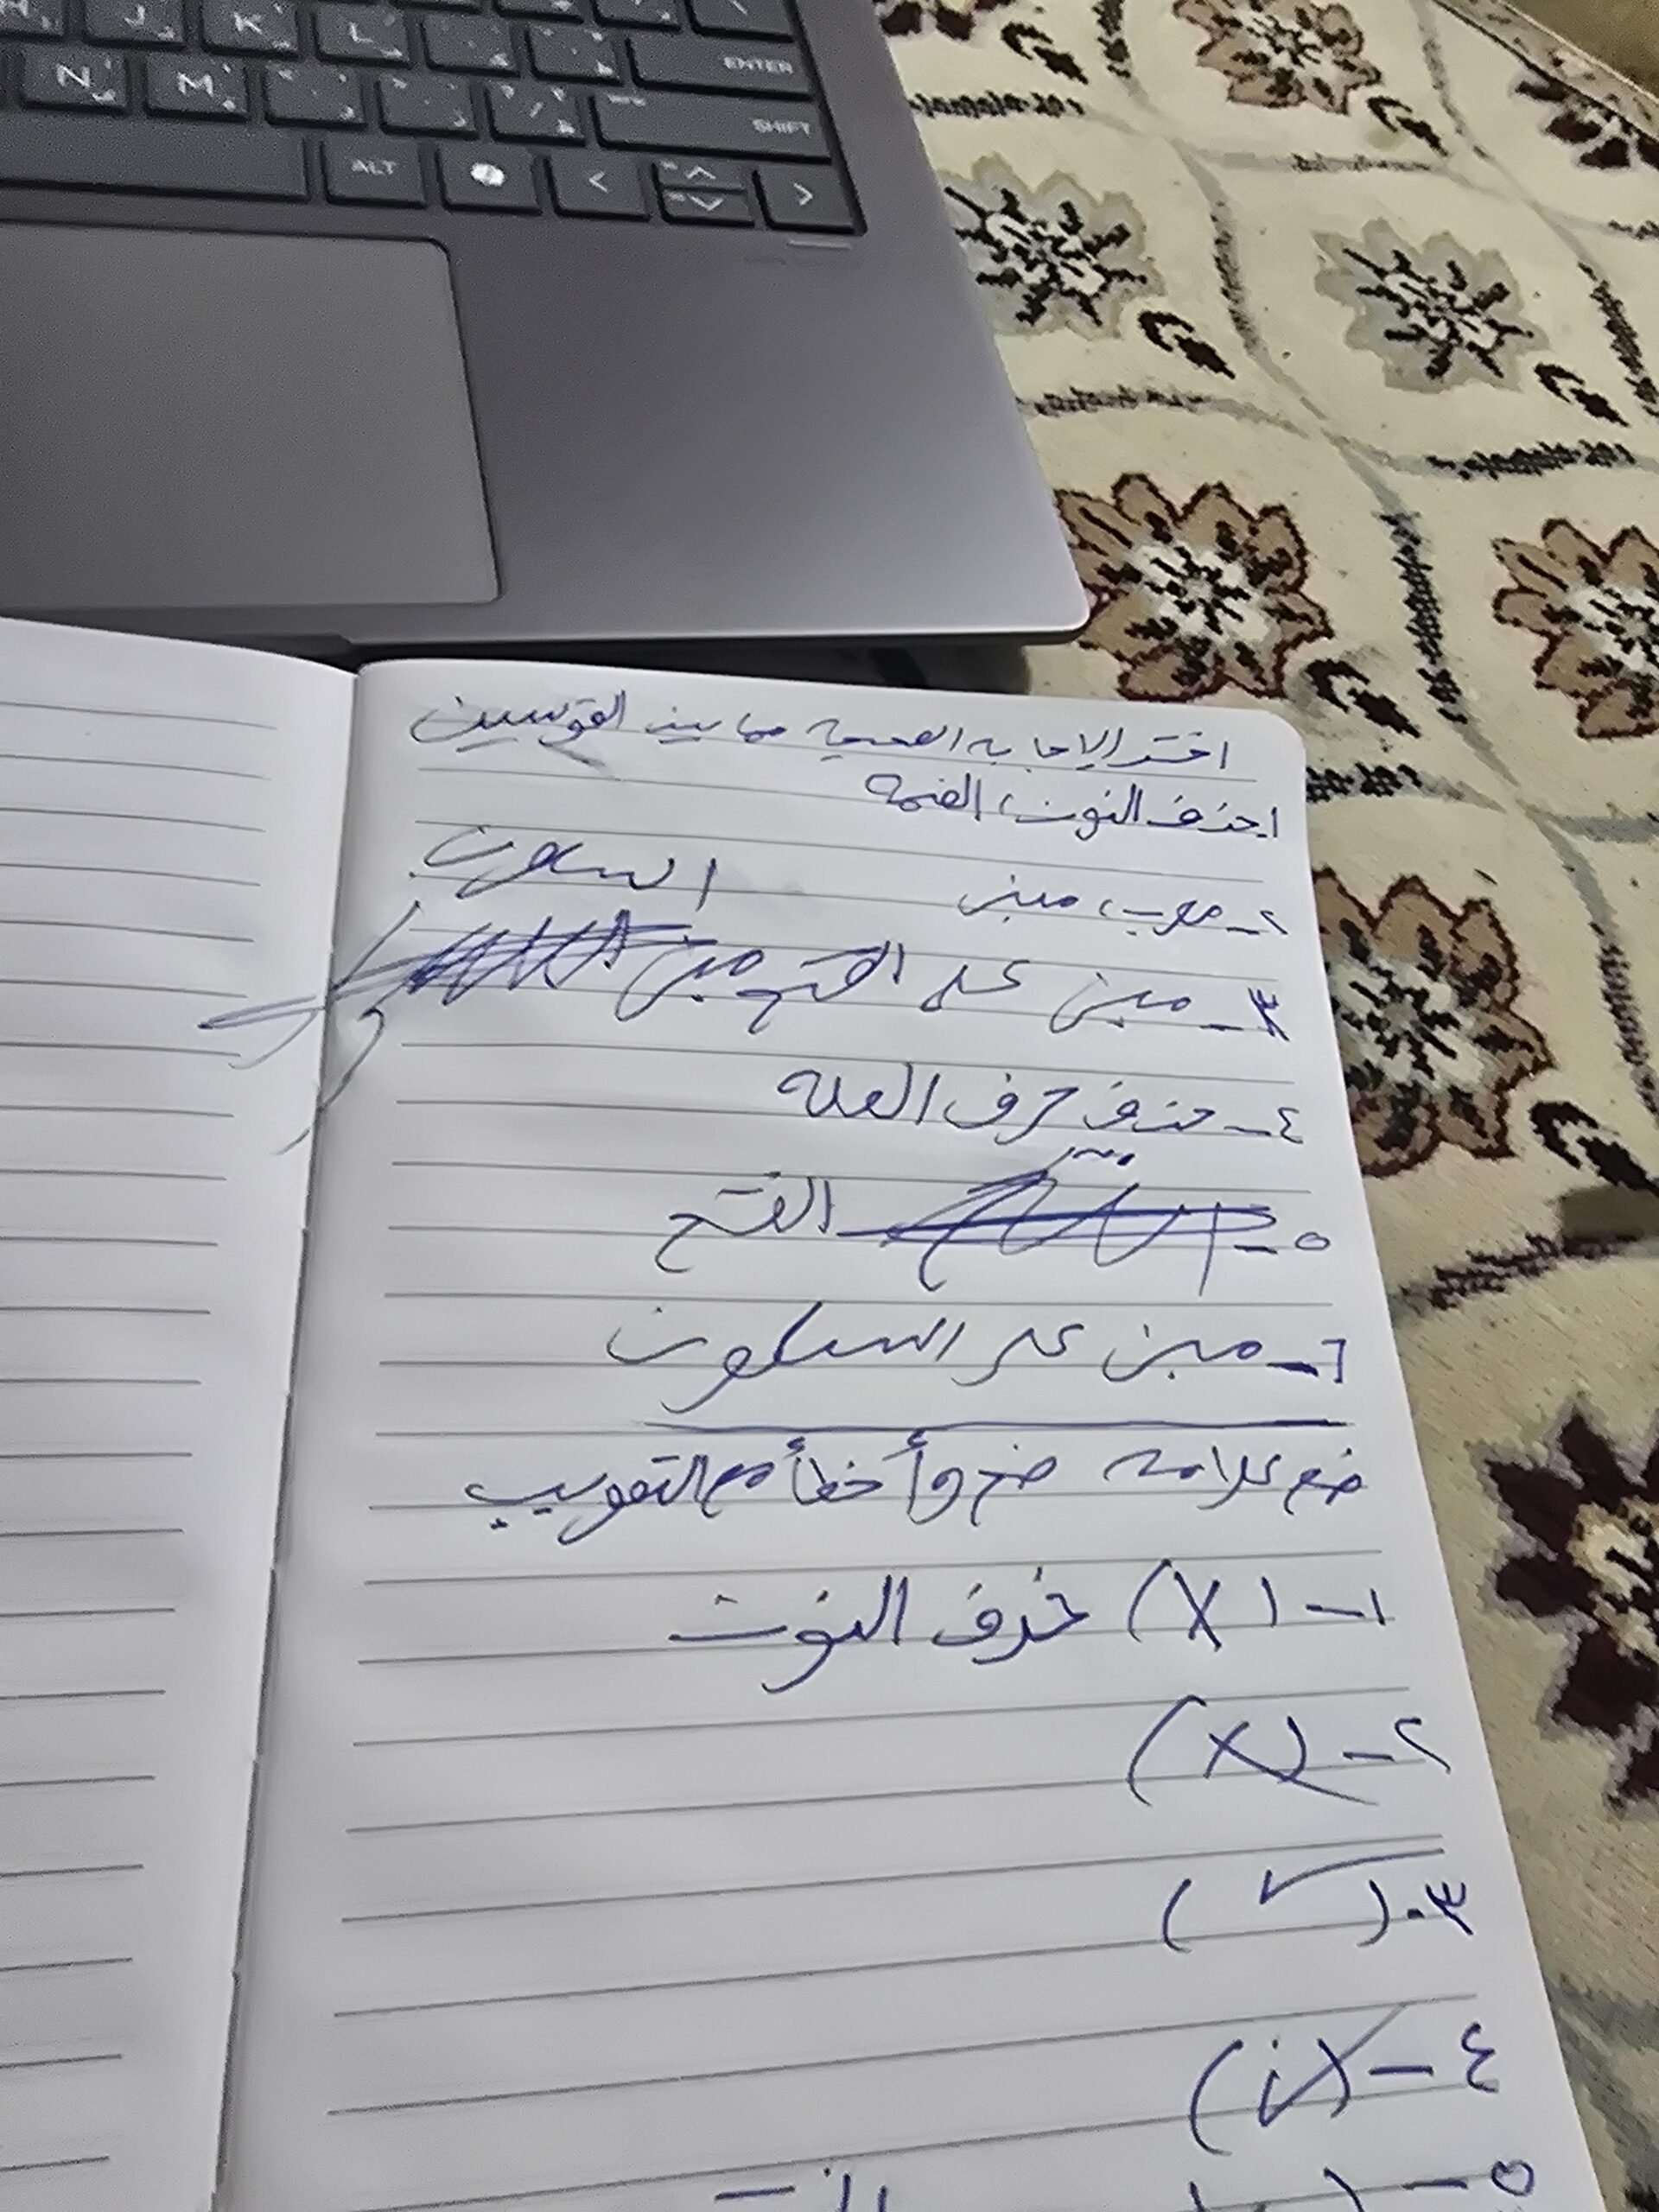 J K L
ENTER
N M
SHIFT
ALT
اختر الإجابة الصحيحة مما بين القوسين
١. حذف النون، الضمة
٢ - معرب، مبني السكون
٣ - مبني على الفتح مبني
٤ - حذف حرف العلة
٥ - الفتح
٦ - مبني على السكون
ضع علامة صح وأ خطأ مع التصويب
١ - (X) حذف النون
٢ - (X)
٣. (✓)
٤ -
٥ -